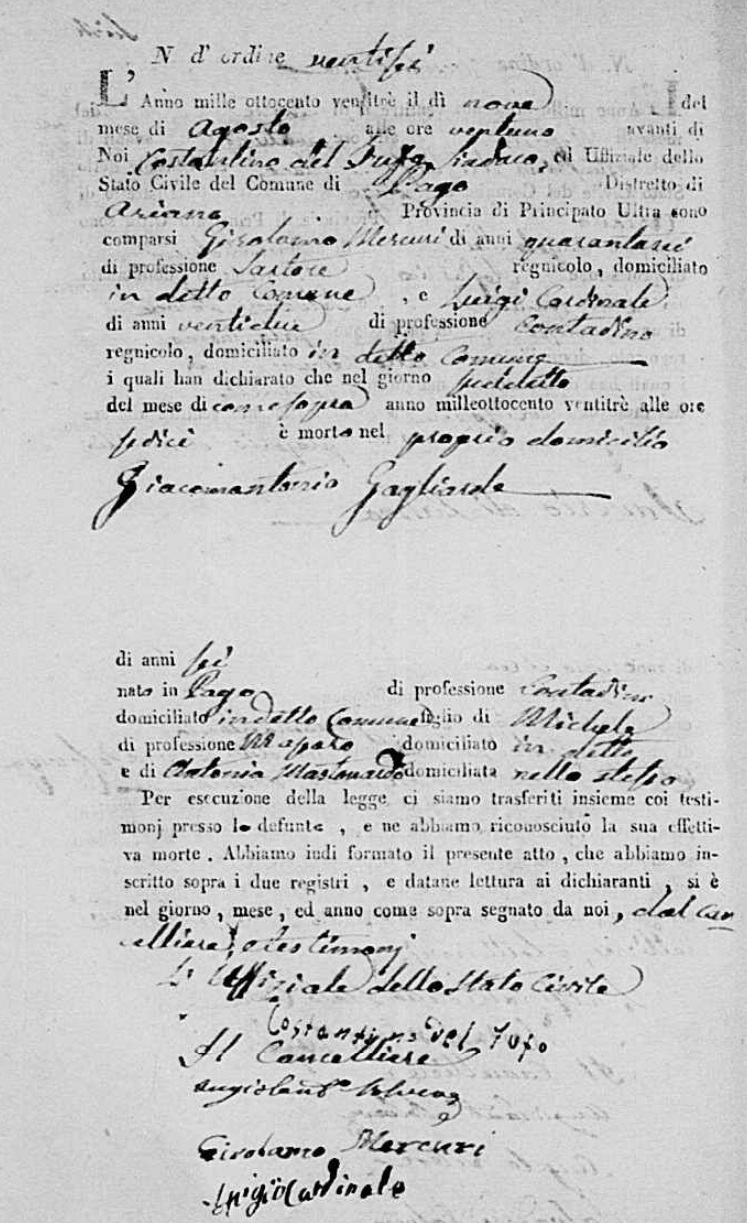 N d'ordine ventisei
L'Anno mille ottocento ventitrè il dì nove del
mese di Agosto alle ore ventuno avanti di
Noi Costantino del Tufo Sindaco, ed Uffiziale dello
Stato Civile del Comune di Pago Distretto di
Ariano Provincia di Principato Ultra sono
comparsi Girolamo Mercuri di anni quarantasei
di professione Sartore regnicolo, domiciliato
in detto Comune, e Luigi Cardinale
di anni ventidue di professione Contadino
regnicolo, domiciliato in detto Comune
i quali han dichiarato che nel giorno sudetto
del mese di come sopra anno milleottocento ventitrè alle ore
sedici è morto nel proprio domicilio
Giacomantonio Gagliarde
di anni sei
nato in Pago di professione Contadino
domiciliato in detto Comune figlio di Michele
di professione domiciliato in detto
e di Antonia Mastonardo domiciliata nello stesso
Per esecuzione della legge ci siamo trasferiti insieme coi testi-
monj presso lo defunto, e ne abbiamo riconosciuto la sua effetti-
va morte. Abbiamo indi formato il presente atto, che abbiamo in-
scritto sopra i due registri, e datane lettura ai dichiaranti, si è
nel giorno, mese, ed anno come sopra segnato da noi, dal can
celliere, e testimonj
L'Uffiziale dello Stato Civile
Costantino del Tufo
Il Cancelliere
Girolamo Mercuri
Luigi Cardinale